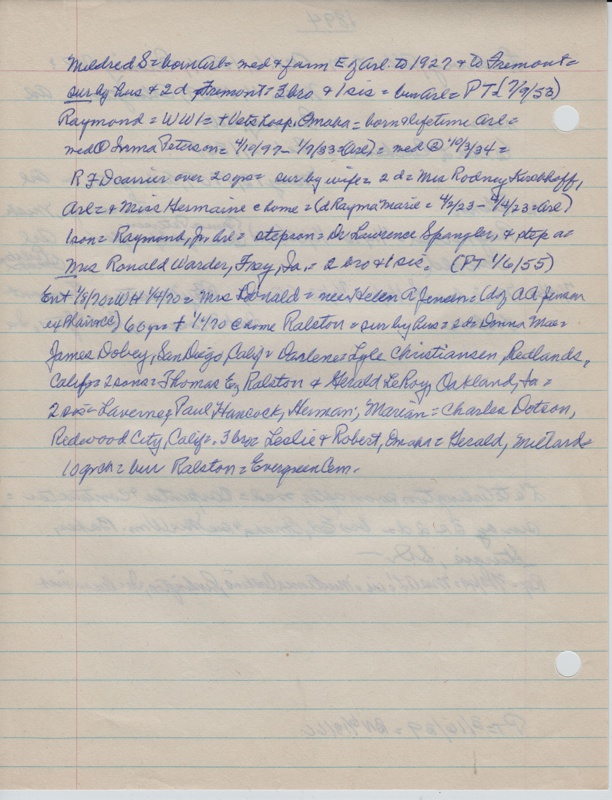 Mildred S = born Arl = med & farm E of Arl. to 1927 & to Fremont =
sur by hus & 2d Fremont = 3 bro & 1 sis = bur Arl = PT 7/9/53)
Raymond = WW1 = + Vets Hosp, Omaha = born & lifetime Arl =
med ① Irma Peterson = - 1/7/33 = Arl) = med ② 10/3/34 =
RFD carrier over 20 yrs = sur by wife = 2 d = Mrs Rodney Kirchhoff,
Arl = & Miss Hermaine @ home = (d Rayma Marie = = Arl)
1 son = Raymond, Jr. Arl = stepson = Dr Lawrence Spangler, & step da
Mrs Ronald Warder, Ia, = 2 bro & 1 sis. (PT 1/6/55)
Ent 1/8/70 = WH 1/4/70 = Mrs Donald = nee Helen A Jensen = (do, AA Jensen
60 yrs + 1/1/70 @ home Ralston = sur by hus = 2 d = Donna Mae =
James Dobey, San Diego, Calif = Darlene = Lyle Christiansen, Redlands,
Calif = 2 sons = Thomas E, Ralston & Gerald LeRoy, Oakland, Ia =
2 sis = Laverne, Paul Hancock, Herman, Marian = Charles Dotson,
Redwood City, Calif = 3 bro = Leslie & Robert, Omaha = Gerald, Millard =
10 grch = bur Ralston = Evergreen Cem.